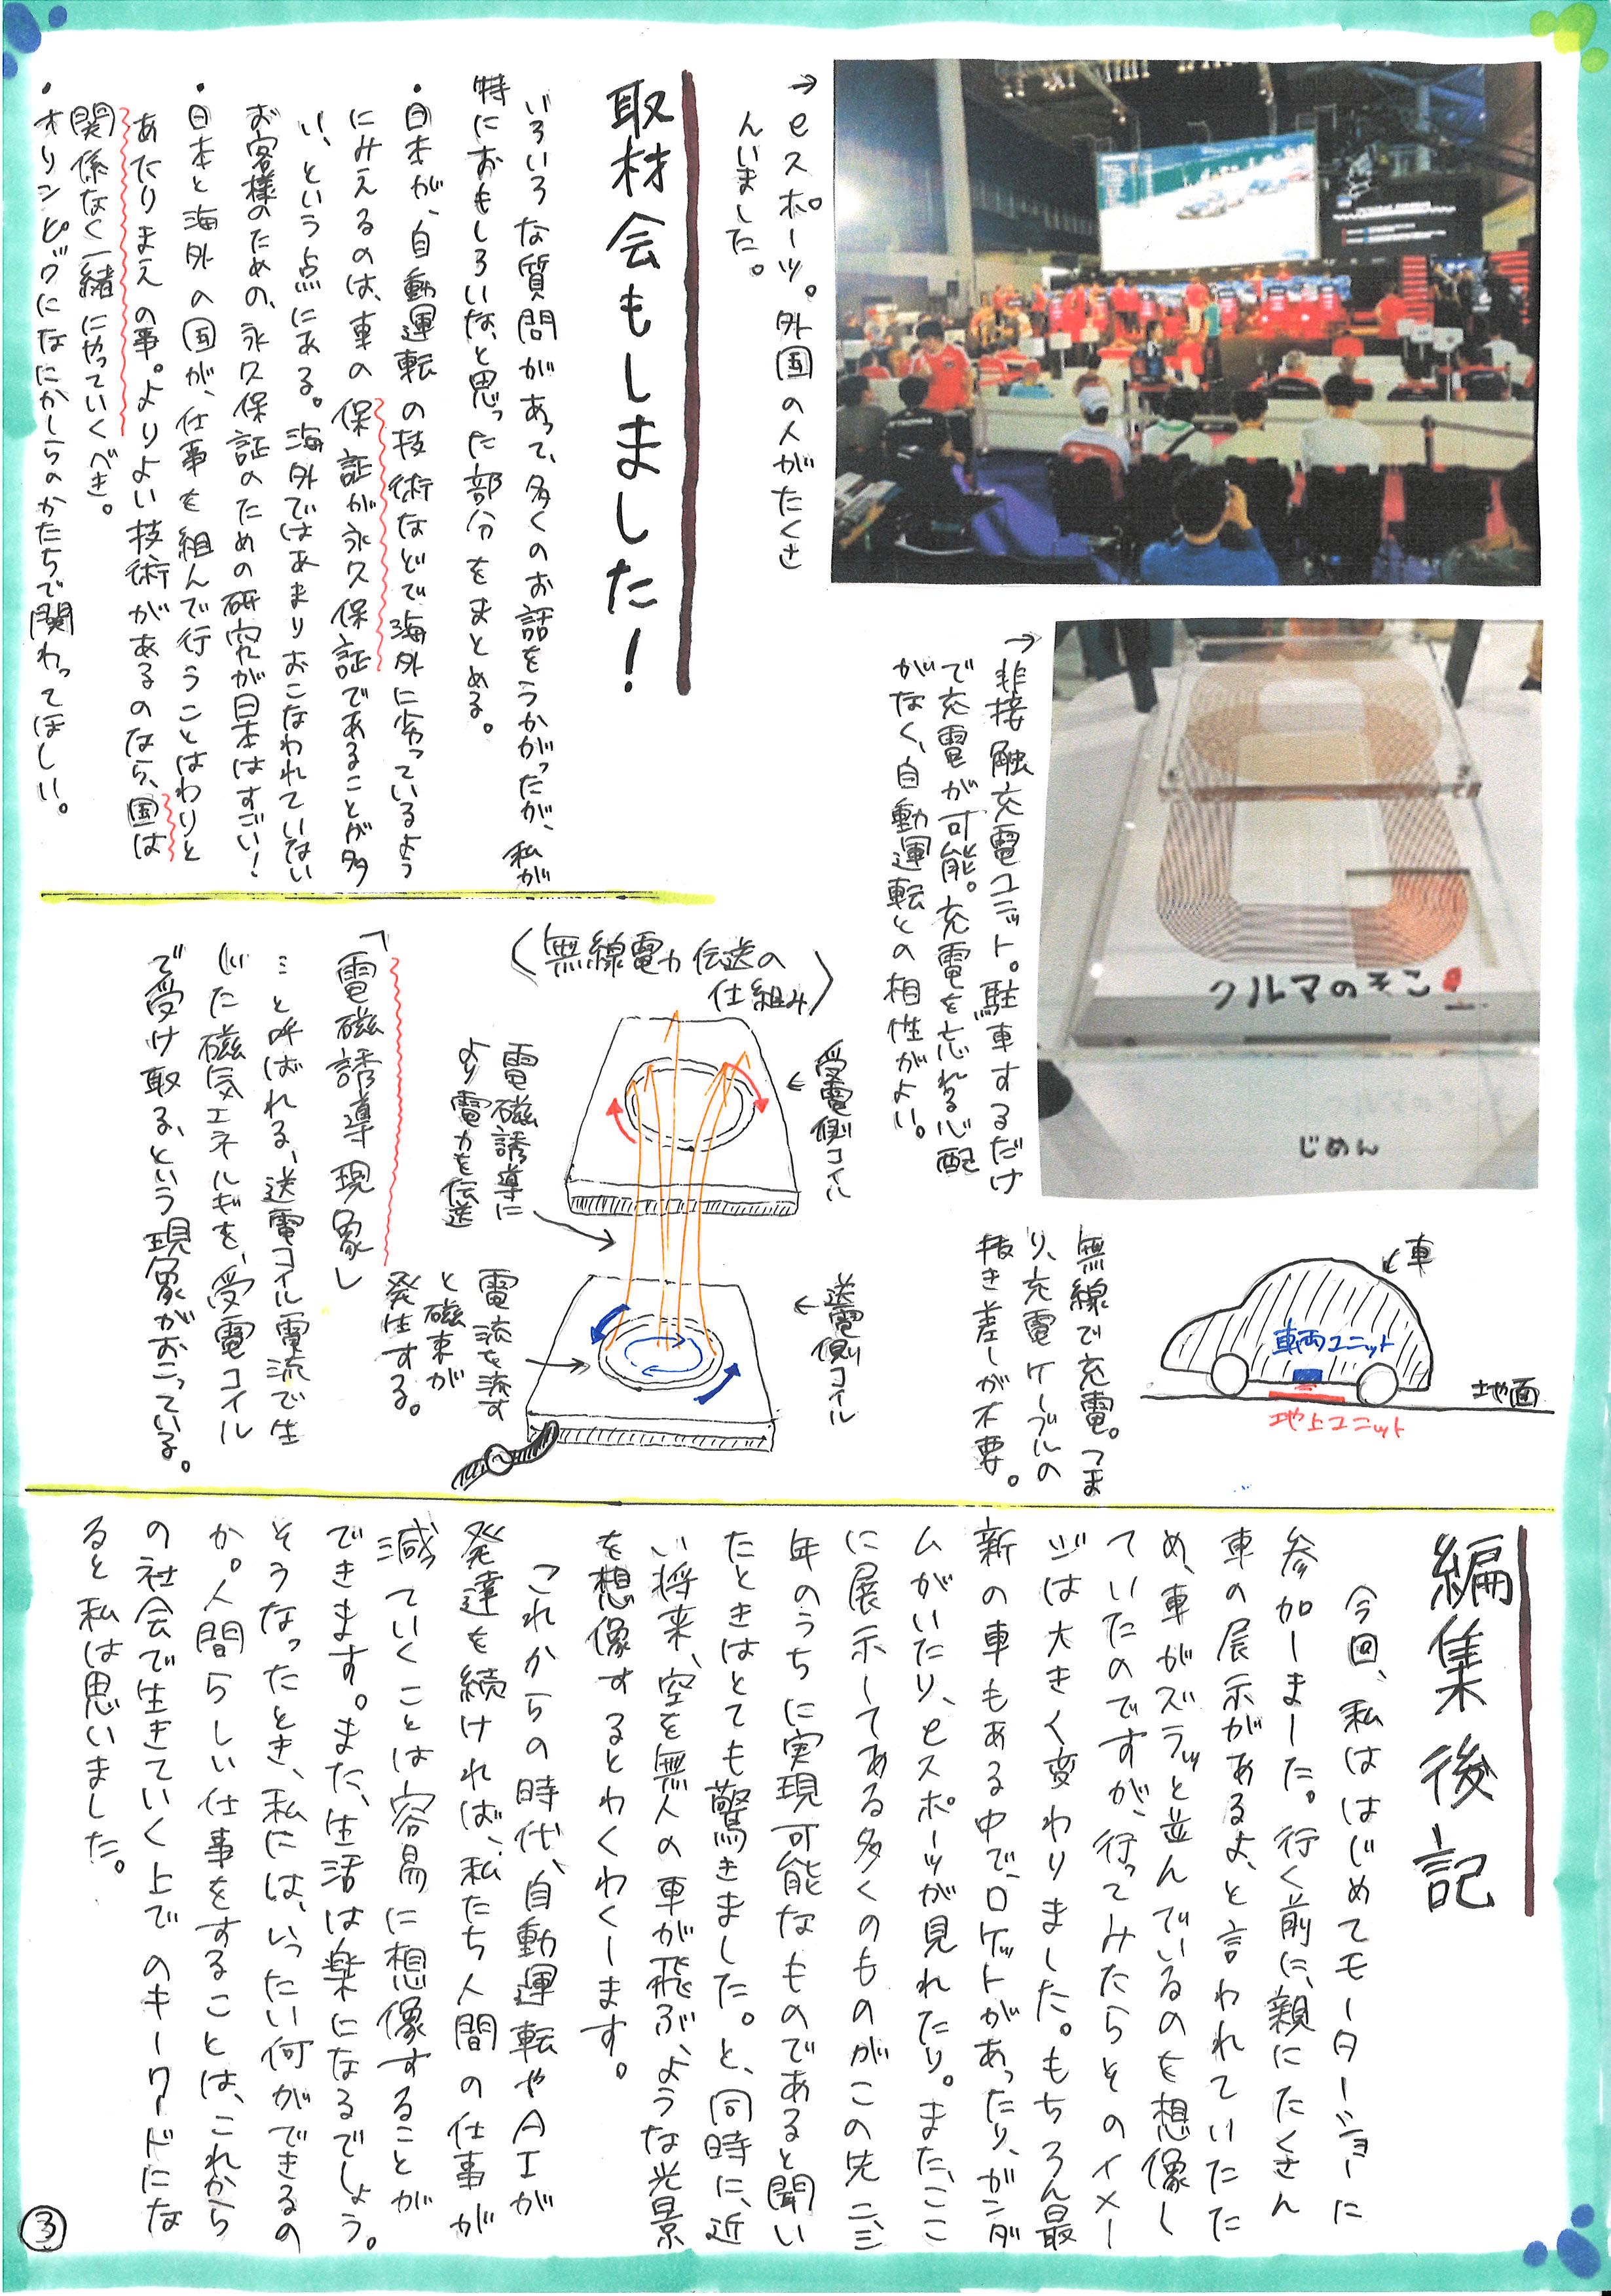 →eスポーツ。外国の人がたくさ
んいました。
取材会もしました!
いろいろな質問があって、多くのお話をうかがったが、私が
特におもしろいな、と思った部分をまとめる。
・日本が、自動運転の技術などで海外に劣っているよう
にみえるのは、車の保証が永久保証であることが多
い、という点にある。海外ではあまりおこなわれていない
お客様のための、永久保証のための研究が日本はすごい!
・日本と海外の国が、仕事を組んで行うことはわりと
あたりまえの事。よりよい技術があるのなら、国は
関係なく一緒にやっていくべき。
・オリンピックになにかしらのかたちで関わってほしい。
→非接触充電ユニット。駐車するだけ
で充電が可能。充電を忘れる心配
がなく、自動運転との相性がよい。
クルマのそこ
じめん
車
車両ユニット
地面
地上ユニット
無線で充電。つま
り、充電ケーブルの
抜き差しが不要。
(無線電力伝送の
仕組み)
←受電側コイル
電磁誘導に
より電力を伝送
←送電側コイル
電流を流す
と磁束が
発生する。
「電磁誘導現象」
…と呼ばれる、送電コイル電流で生
じた磁気エネルギを、受電コイル
で受け取る、という現象がおこっている。
編集後記
今回、私ははじめてモーターショーに
参加しました。行く前に、親にたくさん
車の展示があるよ、と言われていたた
め、車がズラッと並んでいるのを想像し
ていたのですが、行ってみたらそのイメー
ジは大きく変わりました。もちろん最
新の車もある中で、ロケットがあったり、ガンダ
ムがいたり、eスポーツが見れたり。また、ここ
に展示してある多くのものがこの先二、三
年のうちに実現可能なものであると聞い
たときはとても驚きました。と、同時に、近
い将来、空を無人の車が飛ぶ、ような光景
を想像するとわくわくします。
これからの時代、自動運転やAIが
発達を続ければ、私たち人間の仕事が
減っていくことは容易に想像することが
できます。また、生活は楽になるでしょう。
そうなったとき、私には、いったい何ができるの
か。人間らしい仕事をすることは、これから
の社会で生きていく上でのキーワードにな
ると私は思いました。
③